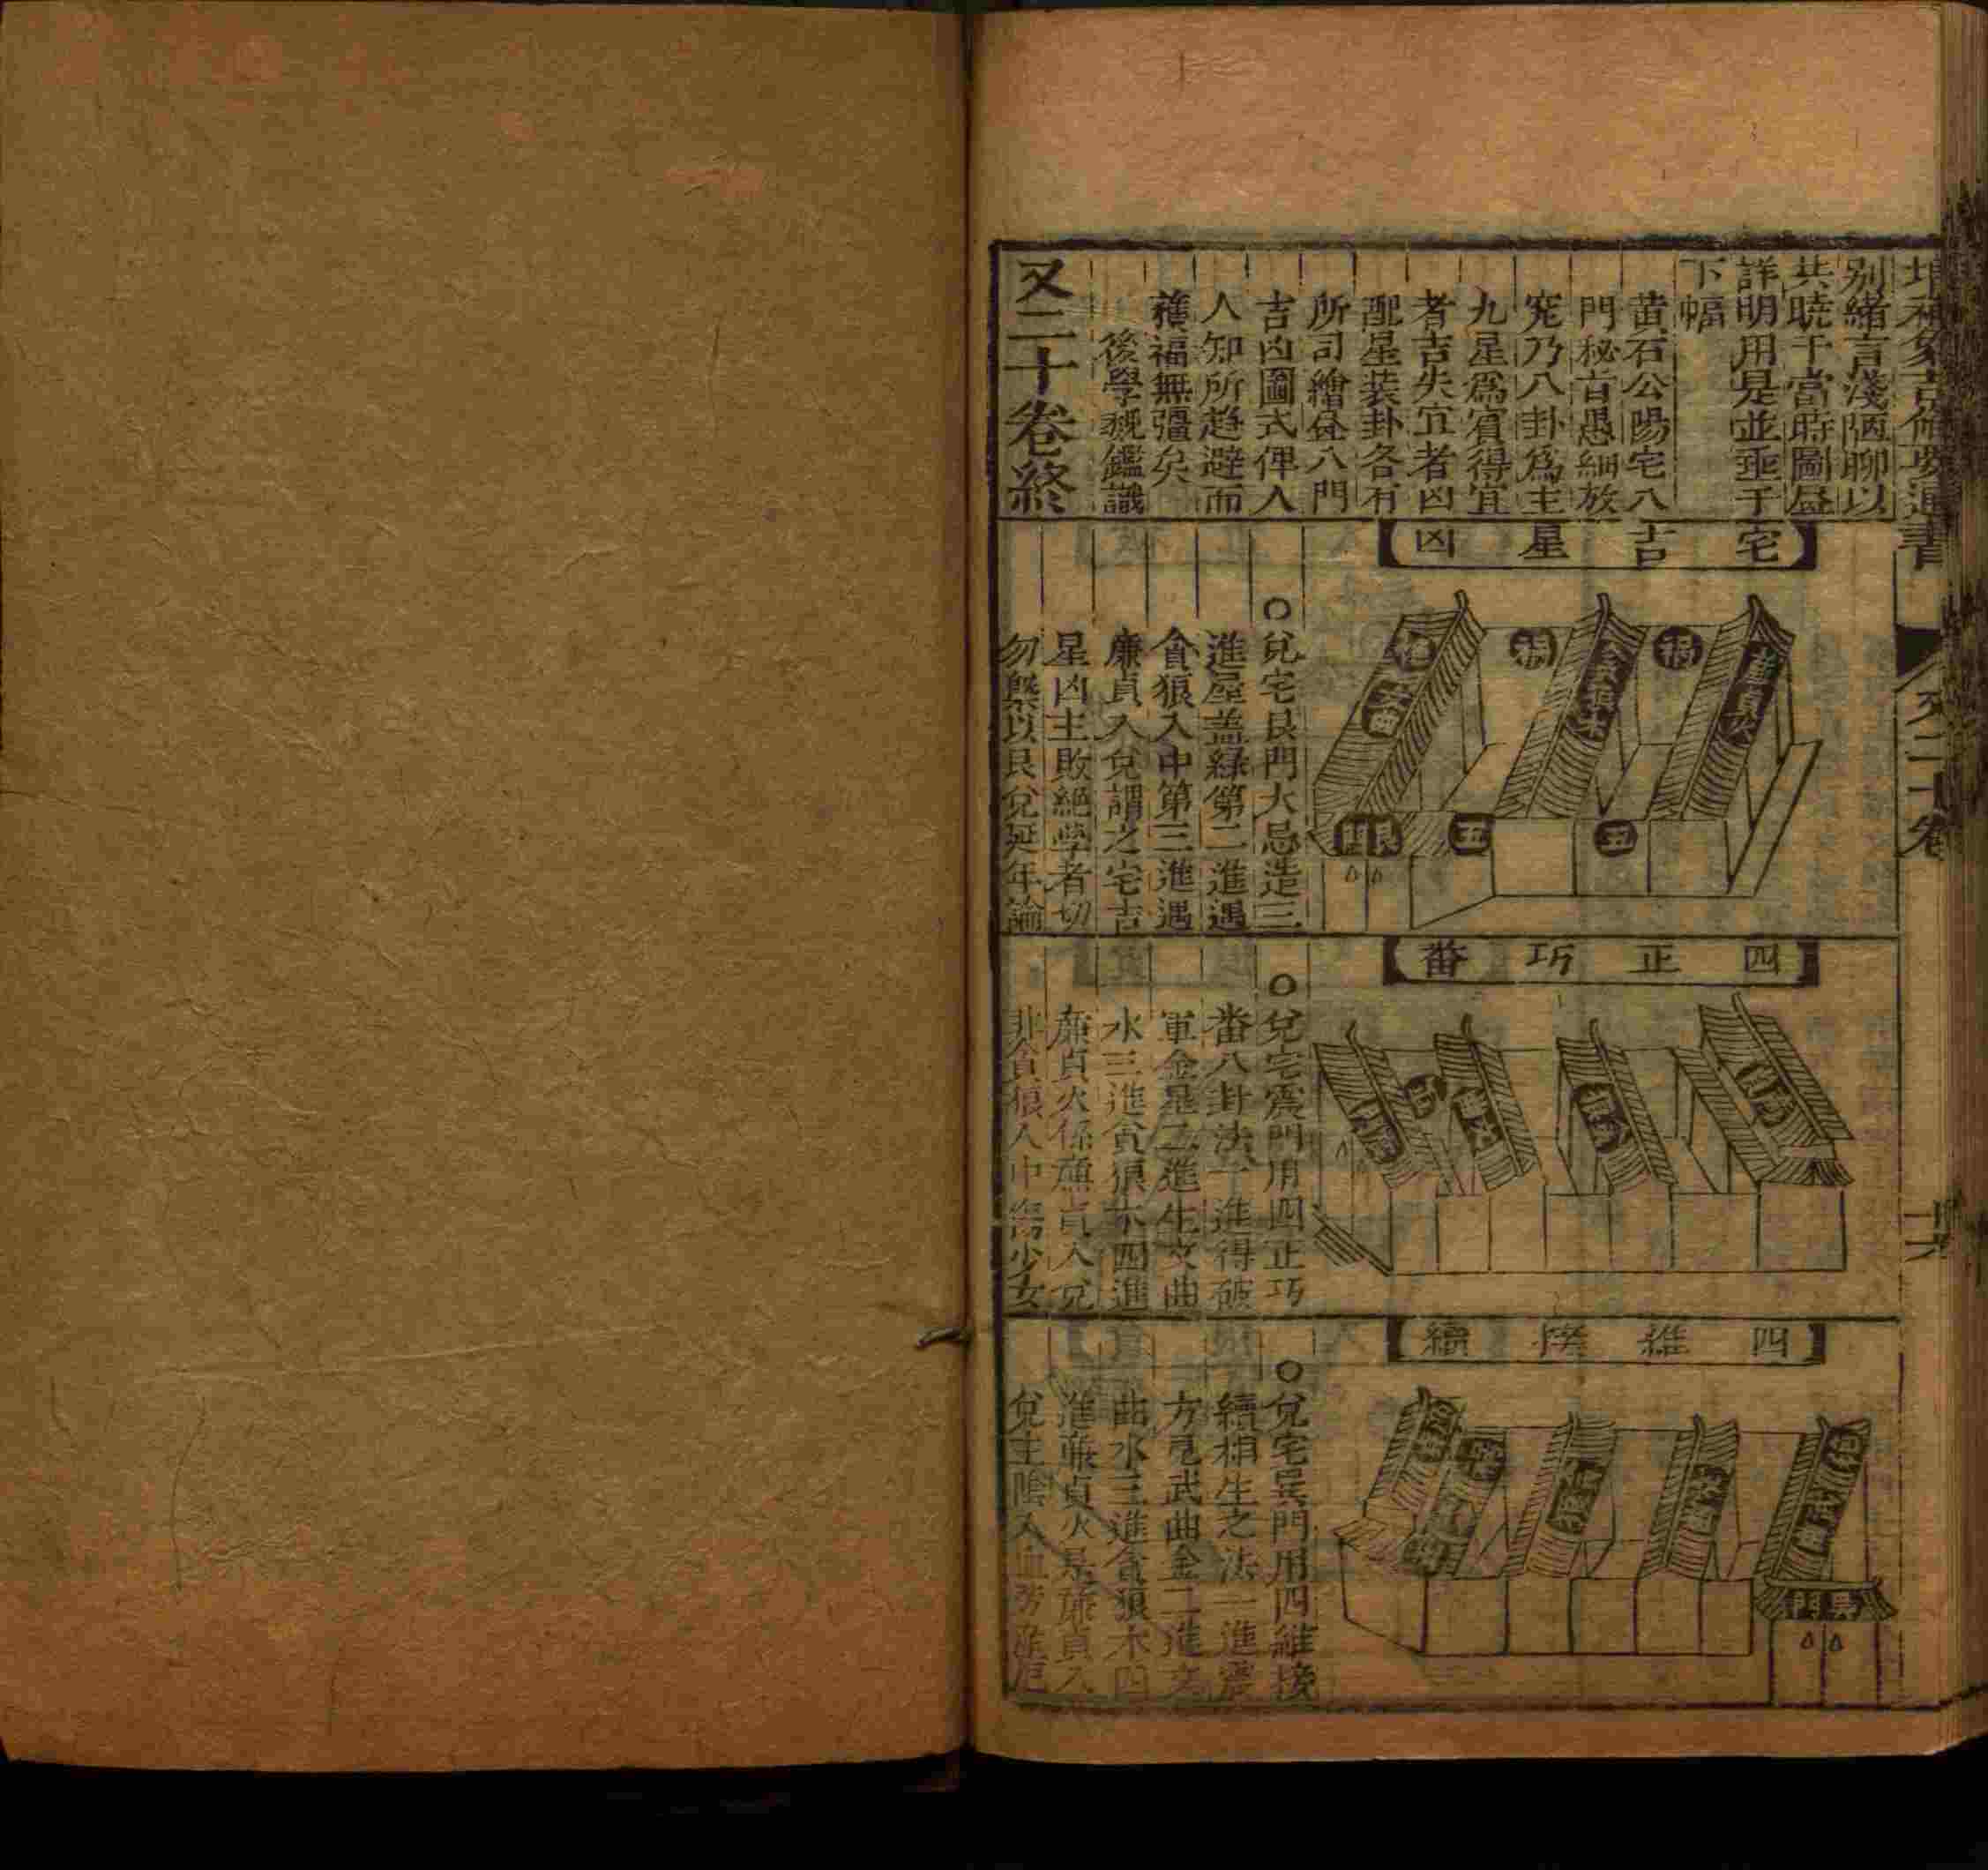 增補象吉備要通書
又二十卷
十六
别緒言淺陋聊以
共曉于當時圖
詳明用是並垂于
下幅
黃石公陽宅八
門秘旨愚細放
究乃八卦為主
九星為賓得宜
者吉失宜者凶
配星装卦各有
所司繪
八門
吉凶圖式俾人
人知所趋避而
獲福無疆矣
後學
鑑識
又二十卷終
宅吉星凶
廉貞火
貪狼木
文曲
禍
禍
五
五
艮門
○兌宅艮門大忌造三
進屋盖緣第二進遇
貪狼入中第三進遇
廉貞入兌謂之宅吉
星凶主敗絕學者切
勿槩以艮兌延年論
四正巧番
○兌宅震門用四正巧
番八卦法一進得破
軍金星二進生文曲
水三進貪狼木四進
廉貞火係廉貞入兌
非貪狼入中傷少女
四維接續
巽門
○兌宅巽門用四維接
續相生之法一進震
方見武曲金二進文
曲水三進貪狼木四
進廉貞火是廉貞入
兌主陰人血